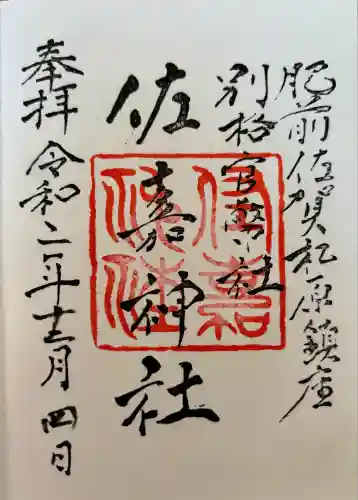 肥前佐賀松原鎮座
別格官幣社
佐嘉神社
奉拝
令和二年十二月四日